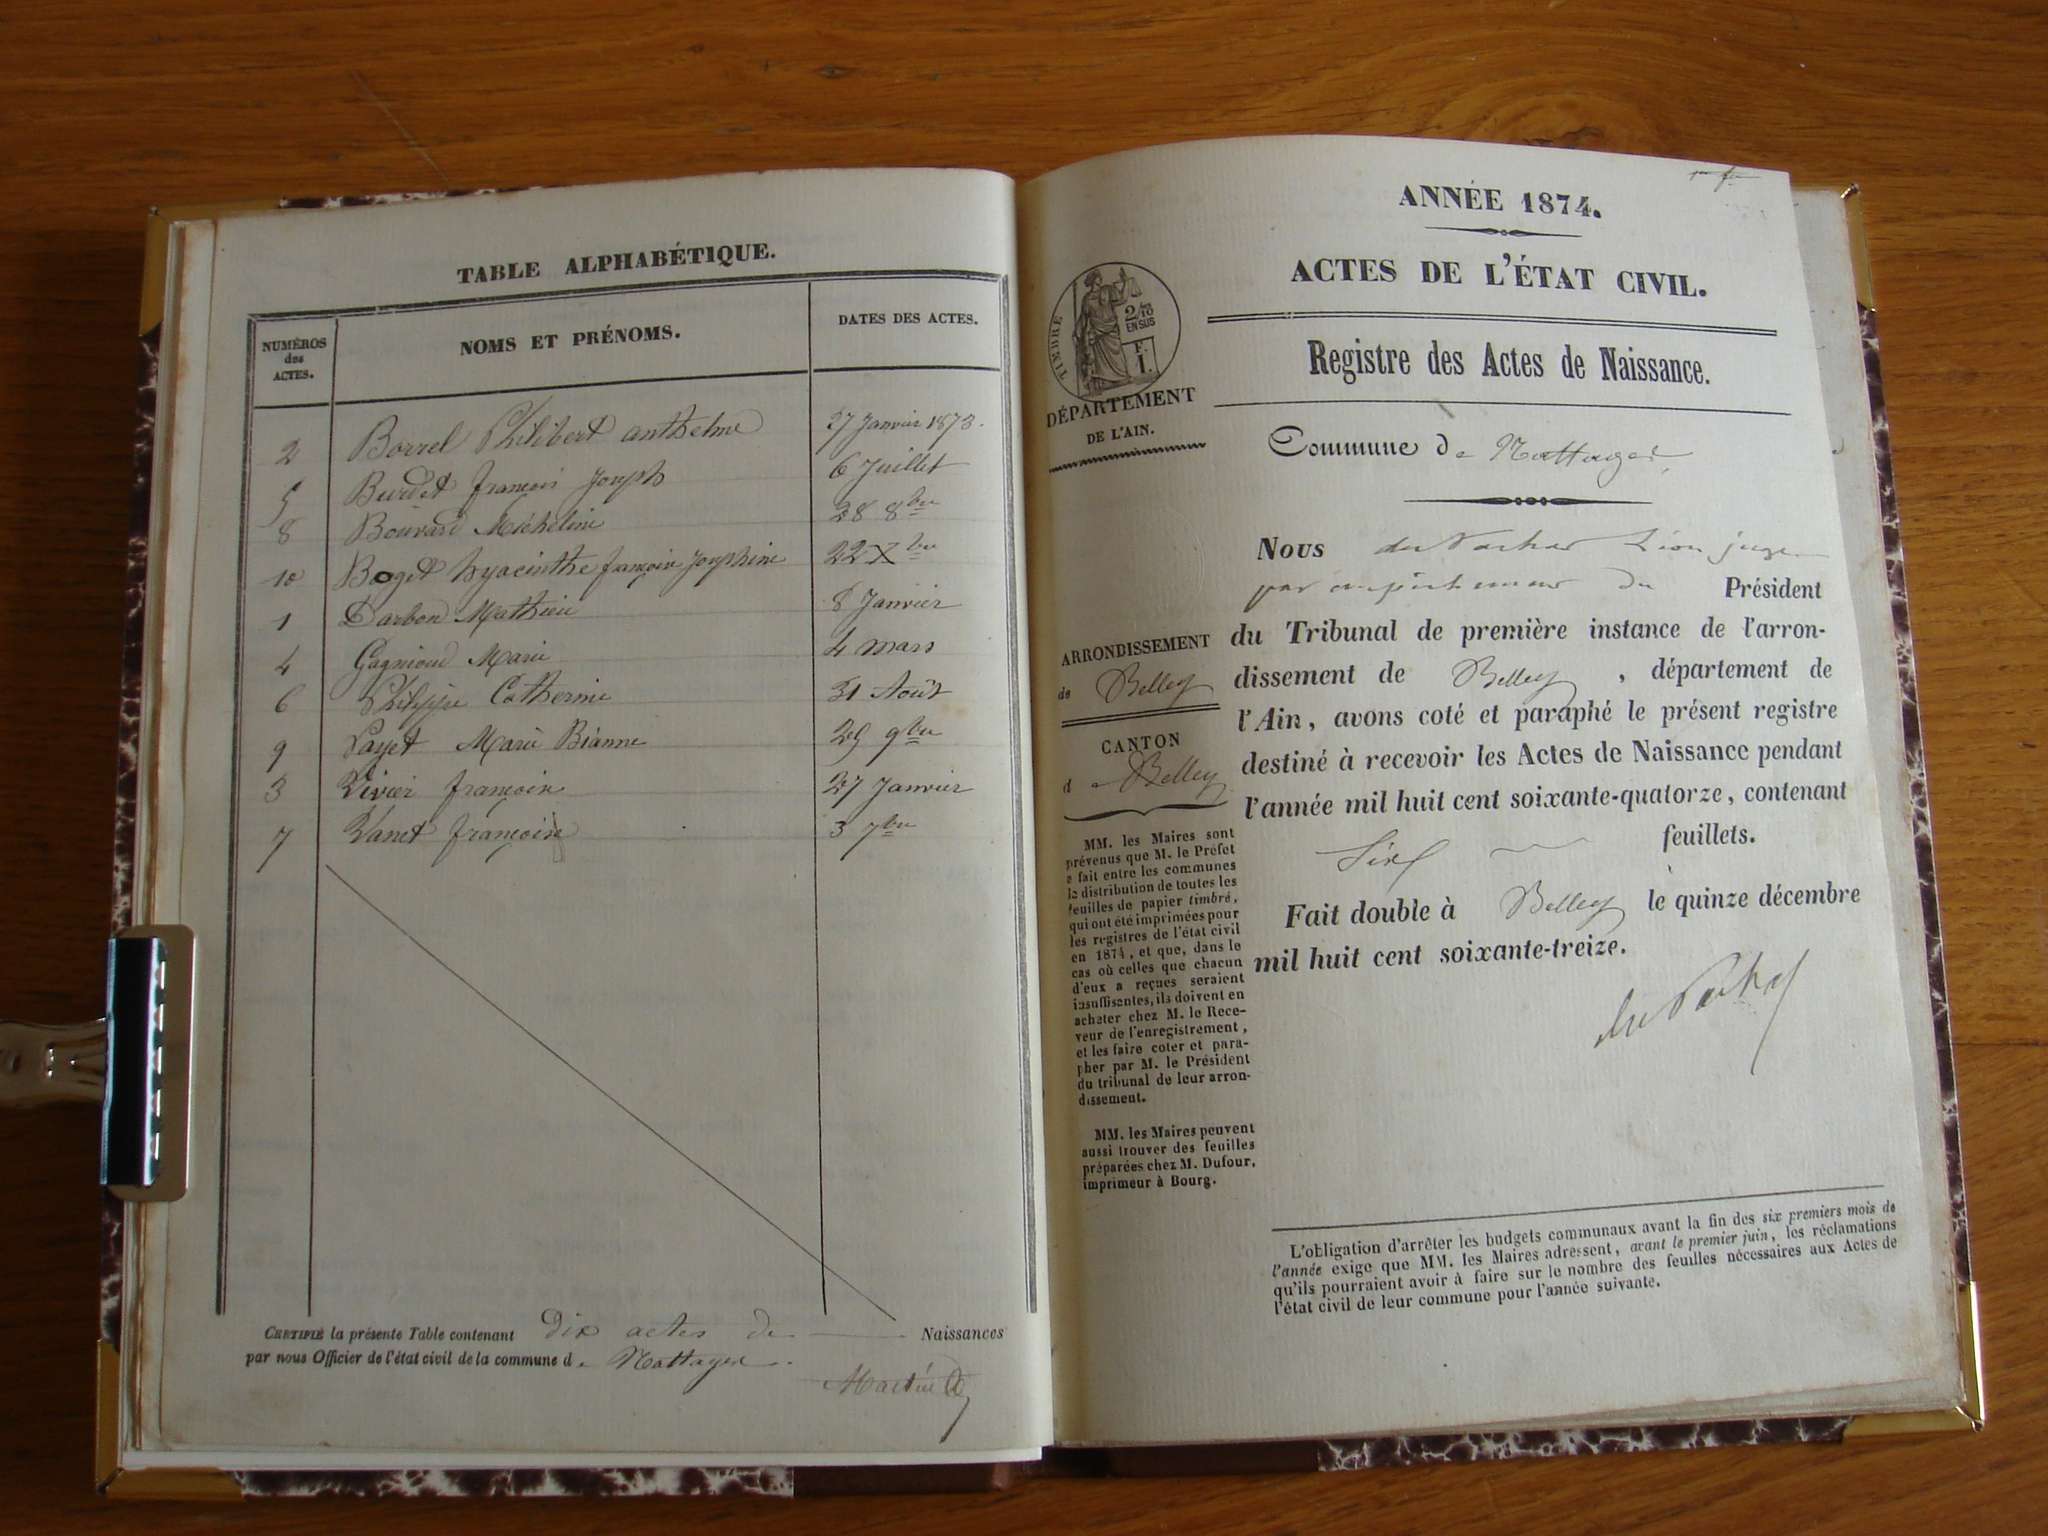 TABLE ALPHABÉTIQUE.
NUMÉROS
des
ACTES.
NOMS ET PRÉNOMS.
DATES DES ACTES.
2 Borrel Philibert anthelme 27 Janvier 1873.
5 Burdet françois Joseph 6 Juillet
8 Bouvard Micheline 28 8bre
10 Boget hyacinthe françois Josephine 22 Xbre
1 Darbon Mathieu 8 Janvier
4 Gagnioud Marie 4 mars
6 Philippe Catherine 31 Août
9 Payet Marie Bianne 29 9bre
3 Vivier françois 27 Janvier
7 Vanet françois 3 7bre
CERTIFIÉ la présente Table contenant Dix actes de Naissances
par nous Officier de l'état civil de la commune de Nattages.
Martin
ANNÉE 1874.
ACTES DE L'ÉTAT CIVIL.
TIMBRE
2/10
EN SUS
F.
1.
DÉPARTEMENT
DE L'AIN.
Registre des Actes de Naissance.
Commune de Nattages
Nous Léon juge
par empêchement du Président
du Tribunal de première instance de l'arron-
dissement de Belley, département de
l'Ain, avons coté et paraphé le présent registre
destiné à recevoir les Actes de Naissance pendant
l'année mil huit cent soixante-quatorze, contenant
Six feuillets.
Fait double à Belley le quinze décembre
mil huit cent soixante-treize.
ARRONDISSEMENT
de Belley
CANTON
de Belley
MM. les Maires sont
prévenus que M. le Préfet
a fait entre les communes
la distribution de toutes les
feuilles de papier timbré,
qui ont été imprimées pour
les registres de l'état civil
en 1874, et que, dans le
cas où celles que chacun
d'eux a reçues seraient
insuffisantes, ils doivent en
acheter chez M. le Rece-
veur de l'enregistrement,
et les faire coter et para-
pher par M. le Président
du tribunal de leur arron-
dissement.
MM. les Maires peuvent
aussi trouver des feuilles
préparées chez M. Dufour,
imprimeur à Bourg.
L'obligation d'arrêter les budgets communaux avant la fin des six premiers mois de
l'année exige que MM. les Maires adressent, avant le premier juin, les réclamations
qu'ils pourraient avoir à faire sur le nombre des feuilles nécessaires aux Actes de
l'état civil de leur commune pour l'année suivante.